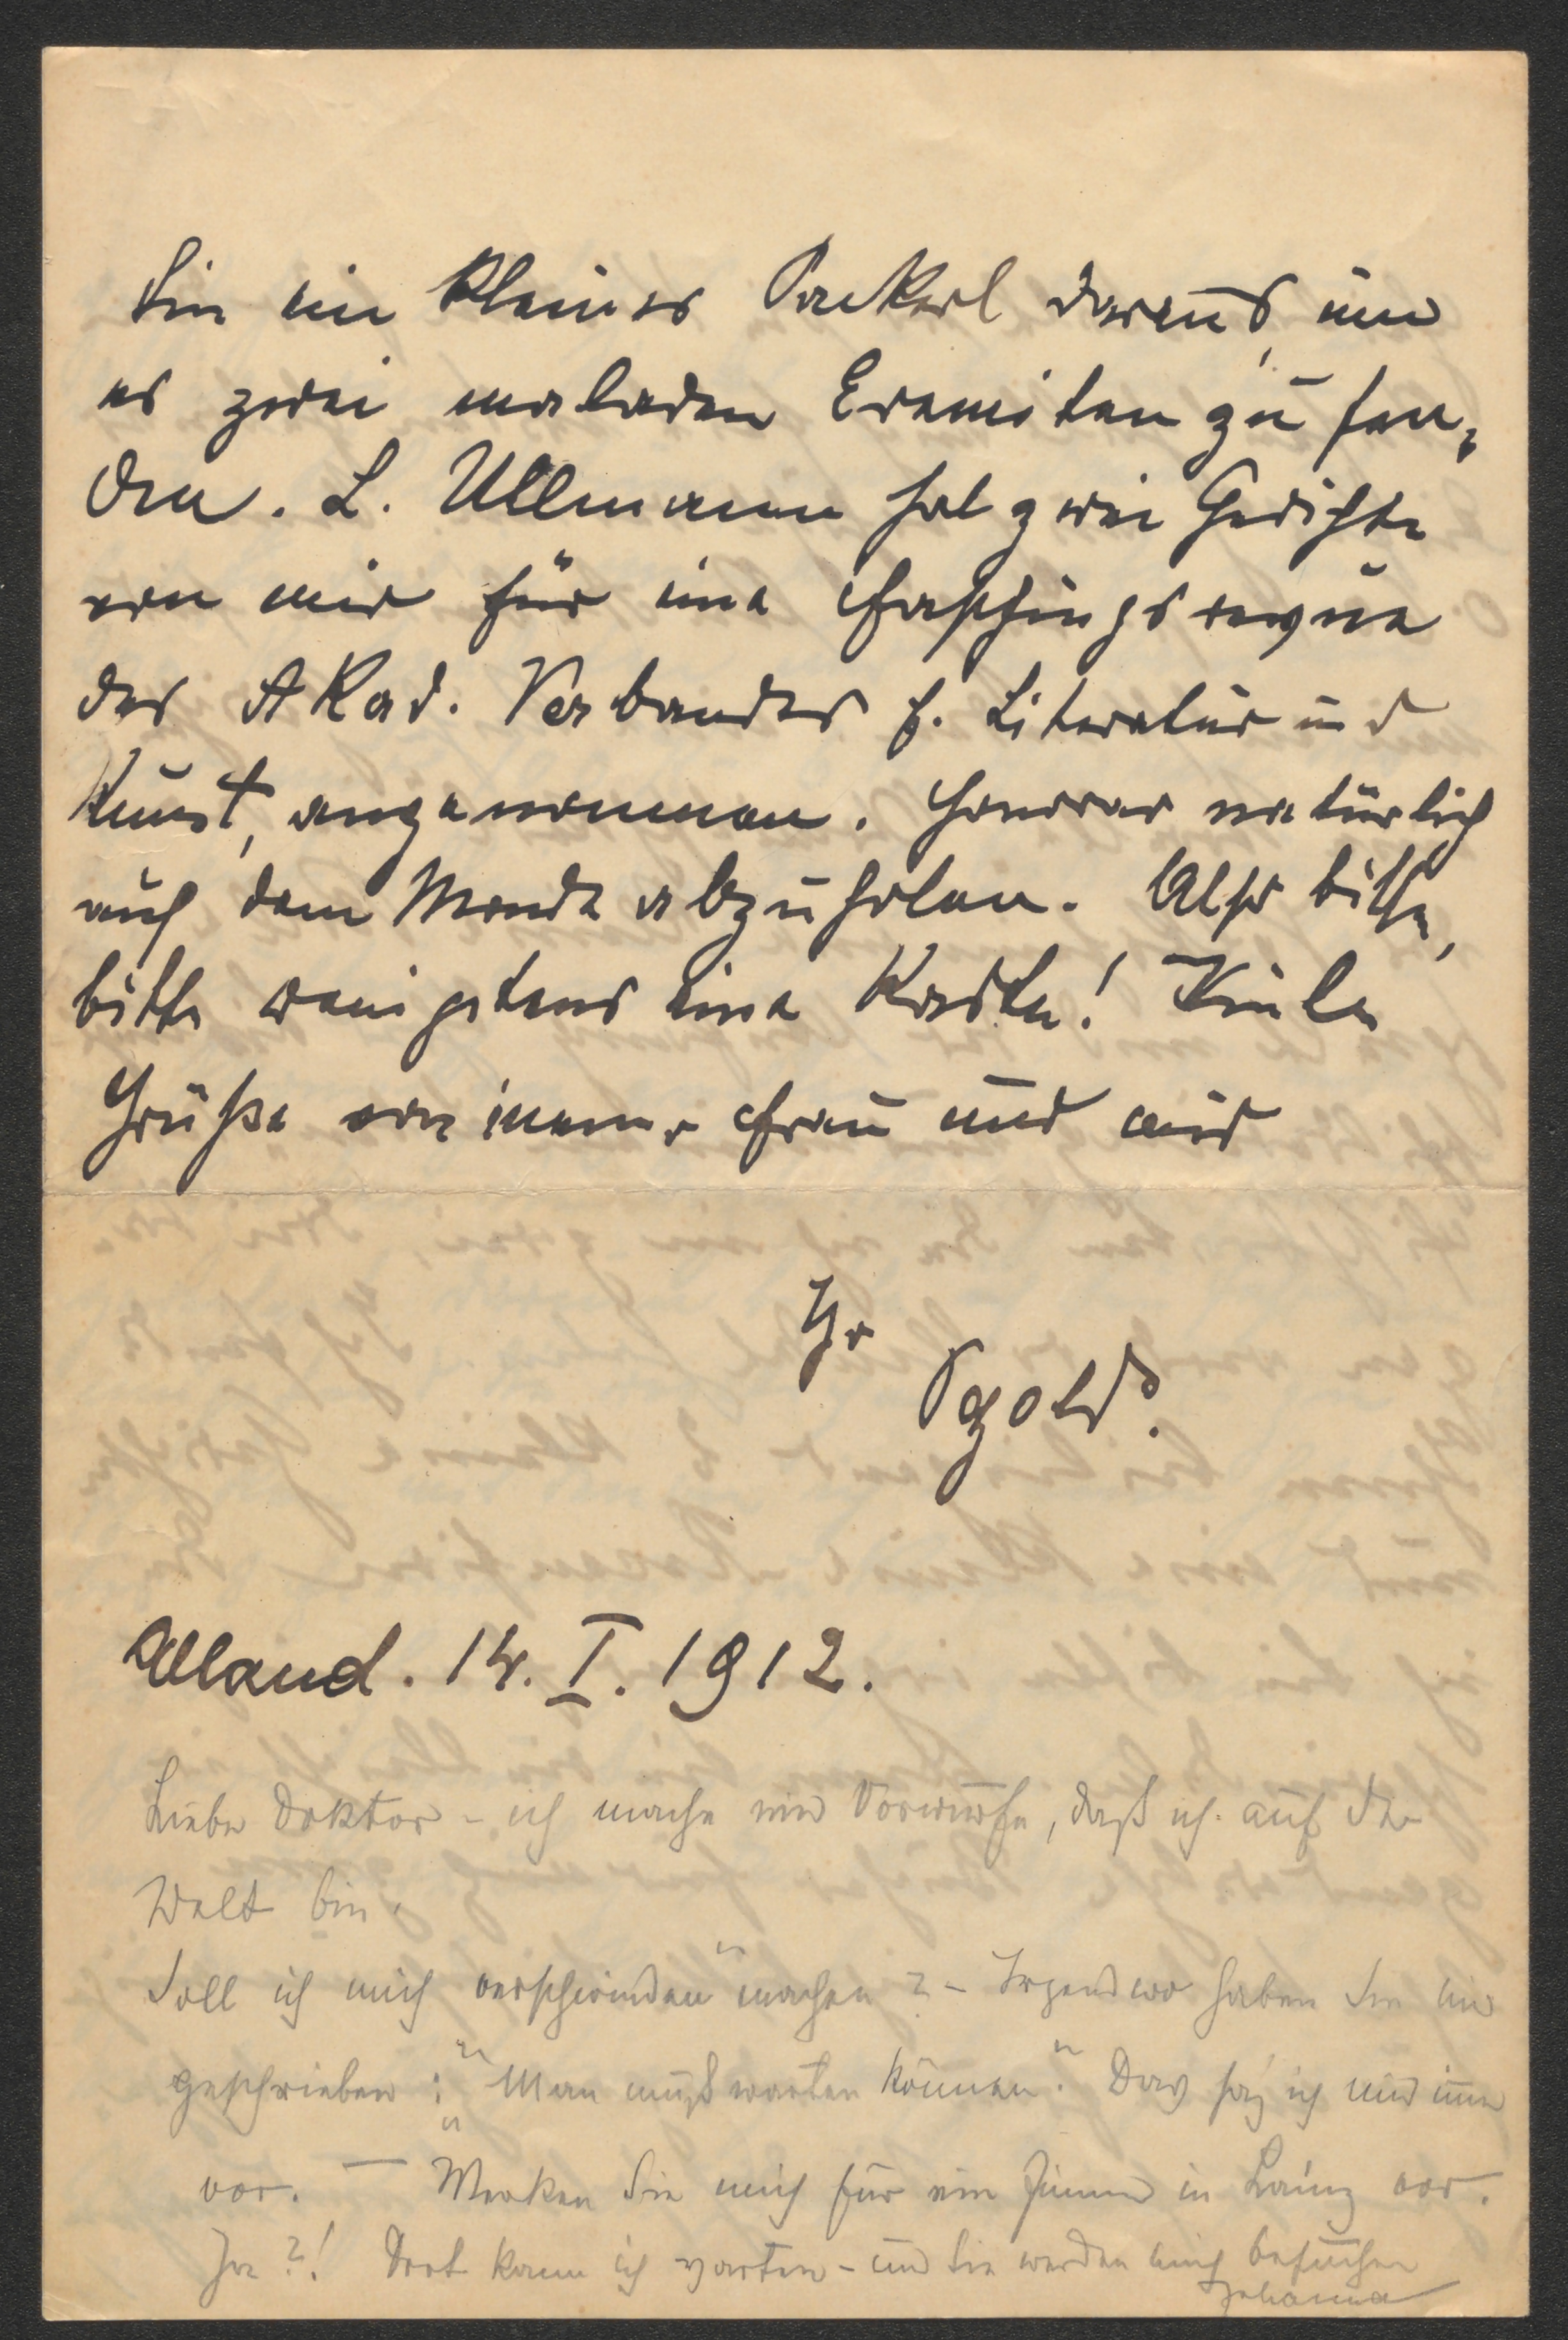 Sie ein kleines Packerl daraus, um
es zwei maladen Eremiten zu sen-
den. L. Ullmann hat zwei Gedichte
von mir für eine Faschingsrevue
des Akad. Verbandes f. Literatur und
Kunst, angenommen. Honorar natürlich
auf dem Monde abzuholen. Also bitte,
bitte wenigstens eine Karte! Viele
Grüße von meiner Frau und mir
Ihr
Pgold.
Alland. 14. I. 1912.
Lieber Doktor - ich mache mir Vorwürfe, daß ich auf der
Welt bin.
Soll ich mich "verschwinden" machen? - Irgendwo haben Sie mir
geschrieben: "Man muß warten können." Das sag ich mir immer
vor. — Merken Sie mich für ein Zimmer in Lainz vor.
Ja?! Dort kann ich warten - und Sie werden mich besuchen
Johanna